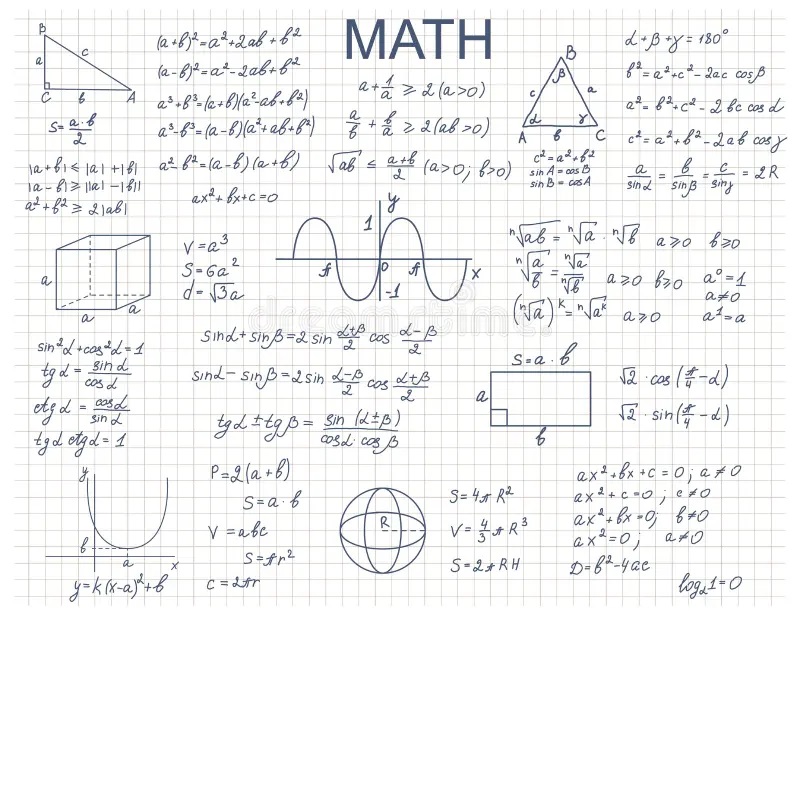 MATH
B
a
c
C
b
A
S = a·b/2
|a+b| ≤ |a|+|b|
|a-b| ≥ ||a|-|b||
a²+b² ≥ 2|ab|
(a+b)²=a²+2ab+b²
(a-b)²=a²-2ab+b²
a³+b³=(a+b)(a²-ab+b²)
a³-b³=(a-b)(a²+ab+b²)
a²-b²=(a-b)(a+b)
ax²+bx+c=0
a+1/a ≥ 2 (a>0)
a/b + b/a ≥ 2 (ab>0)
√ab ≤ (a+b)/2 (a>0; b>0)
B
β
c
a
α
γ
A
b
C
c²=a²+b²
sin A = cos B
sin B = cos A
α+β+γ=180°
b²=a²+c²-2ac cosβ
a²=b²+c²-2bc cosα
c²=a²+b²-2ab cosγ
a/sinα = b/sinβ = c/sinγ = 2R
a
a
a
V=a³
S=6a²
d=√3a
y
1
π
0
π
x
-1
ⁿ√ab = ⁿ√a · ⁿ√b a≥0 b≥0
ⁿ√(a/b) = ⁿ√a/ⁿ√b a≥0 b≥0 a°=1
a≠0
(ⁿ√a)ᵏ = ⁿ√aᵏ a≥0 a¹=a
sin²α+cos²α=1
tgα = sinα/cosα
ctgα = cosα/sinα
tgα ctgα = 1
sinα+sinβ=2 sin (α+β)/2 cos (α-β)/2
sinα-sinβ=2 sin (α-β)/2 cos (α+β)/2
tgα ± tgβ = sin(α±β)/(cosα·cosβ)
S=a·b
a
b
√2·cos(π/4-α)
√2·sin(π/4-α)
y
b
a
x
y=k(x-a)²+b
P=2(a+b)
S=a·b
V=abc
S=πr²
C=2πr
R
S=4πR²
V=4/3πR³
S=2πRH
ax²+bx+c=0; a≠0
ax²+c=0; c≠0
ax²+bx=0; b≠0
ax²=0; a≠0
D=b²-4ac
log₂1=0